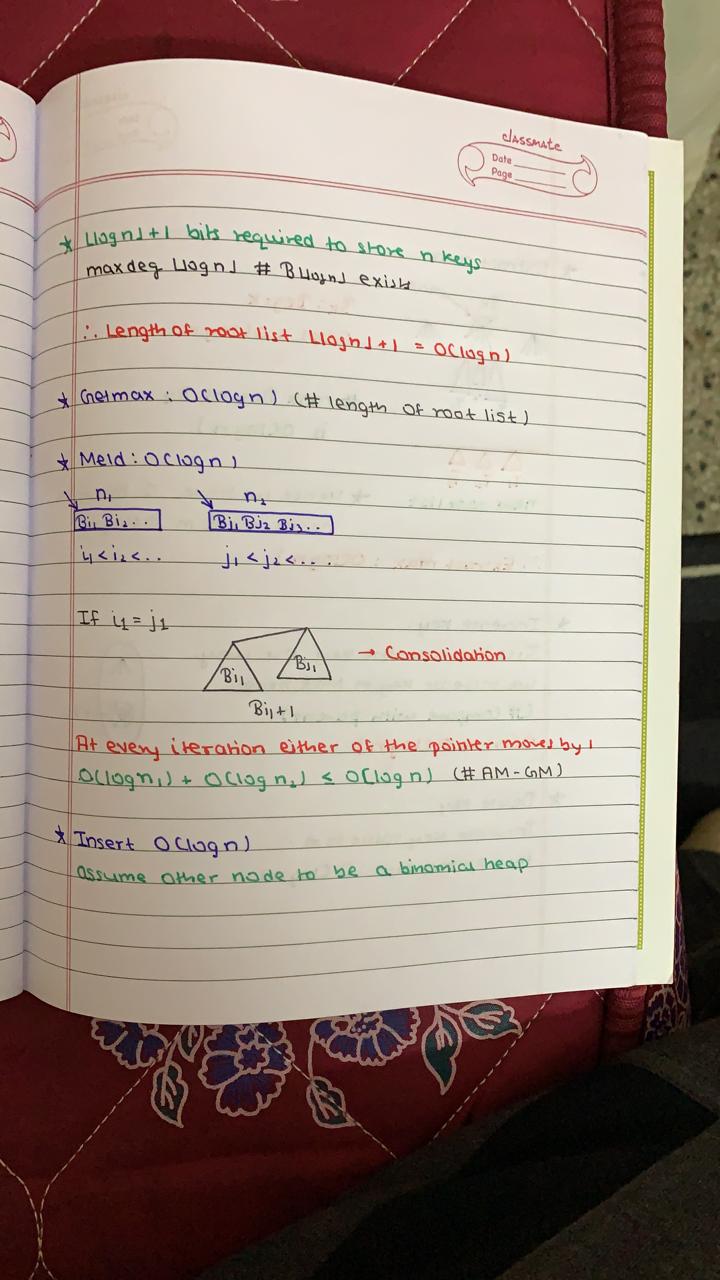 classmate
Date
Page
* ⌊logn⌋+1 bits required to store n keys
max deg ⌊logn⌋ # B⌊logn⌋ exists
∴ Length of root list ⌊logn⌋+1 = O(logn)
* Getmax : O(logn) (# length of root list)
* Meld : O(logn)
n₁ n₂
Bi₁ Bi₂ . . Bj₁ Bj₂ Bj₃ . .
i₁ < i₂ < . . j₁ < j₂ < . . .
If i₁ = j₁
Bi₁ Bj₁ → Consolidation
Bi₁+1
At every iteration either of the pointer moves by 1
O(logn₁) + O(logn₂) ≤ O(logn) (# AM-GM)
* Insert O(logn)
assume other node to be a binomial heap